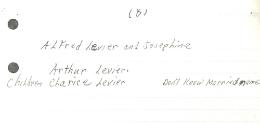 (8)
Alfred Levier and Josephine
Arthur Levier.
Children Clarice Levier Don't Know Married name